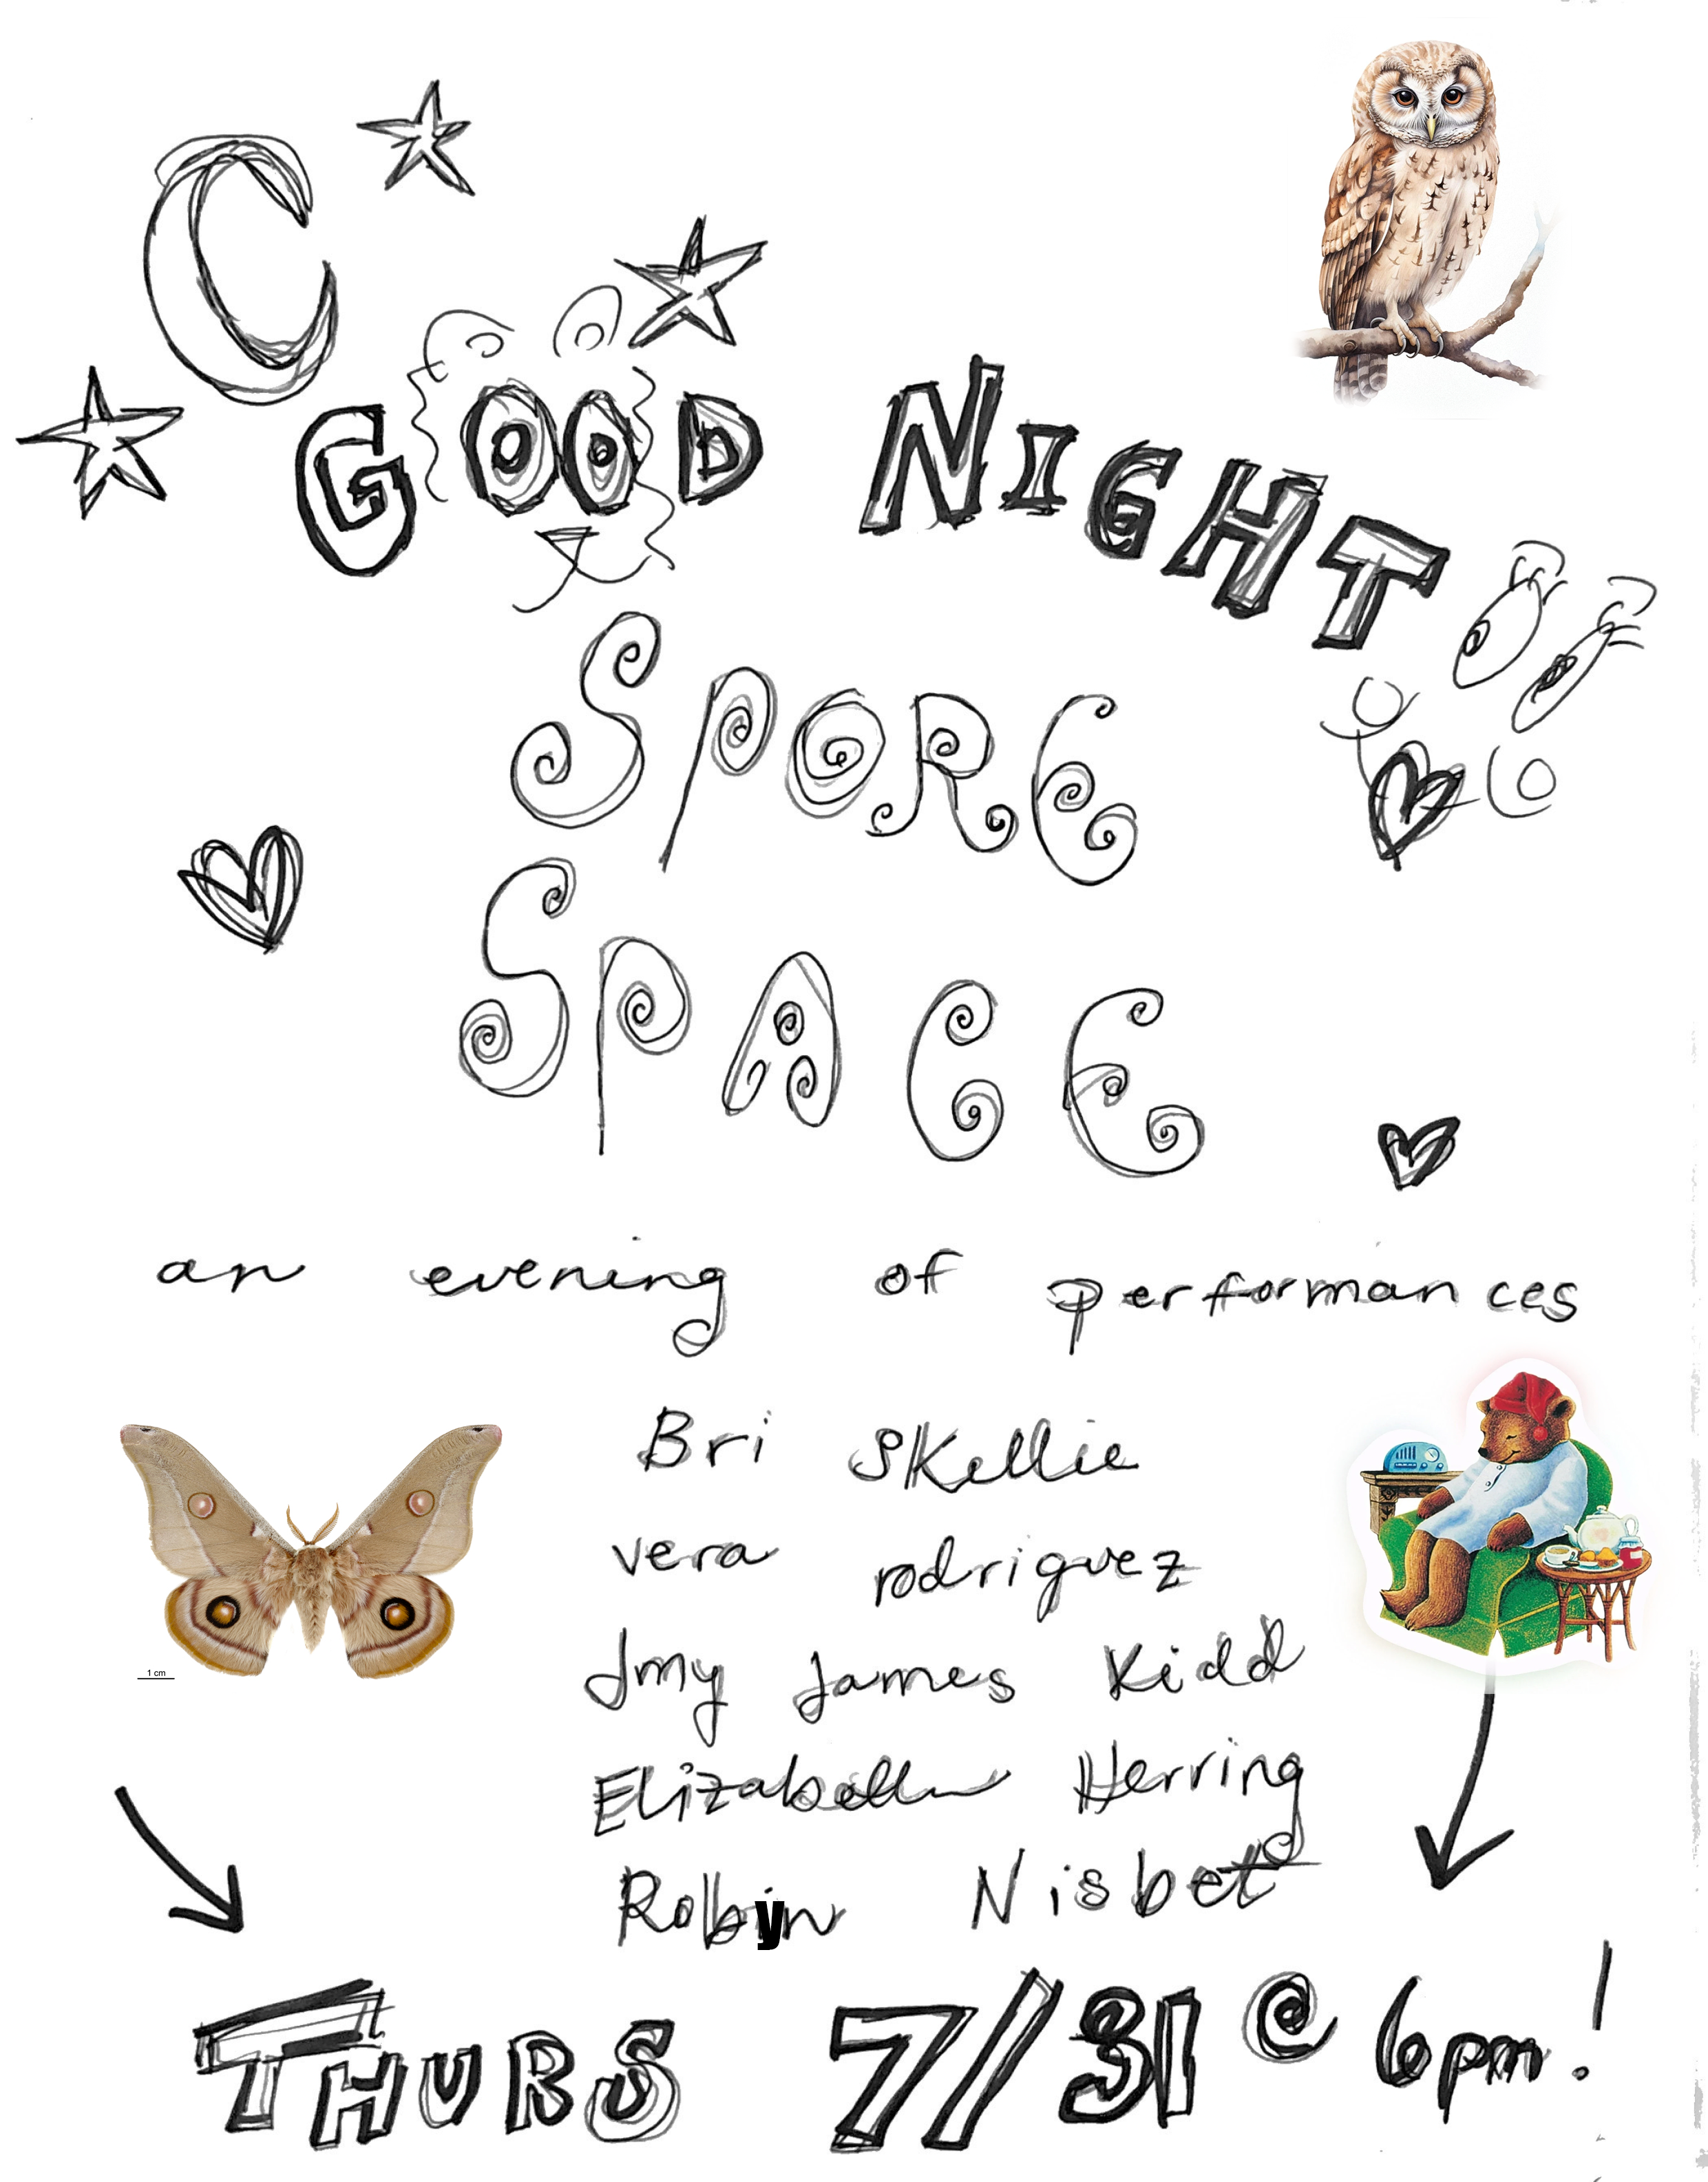 GOOD NIGHT
SPORE
SPACE
an evening of performances
Bri Skellie
vera rodriguez
Jmy James Kidd
Herring
Nisbet
1 cm
THURS 7/31 @ 6pm!